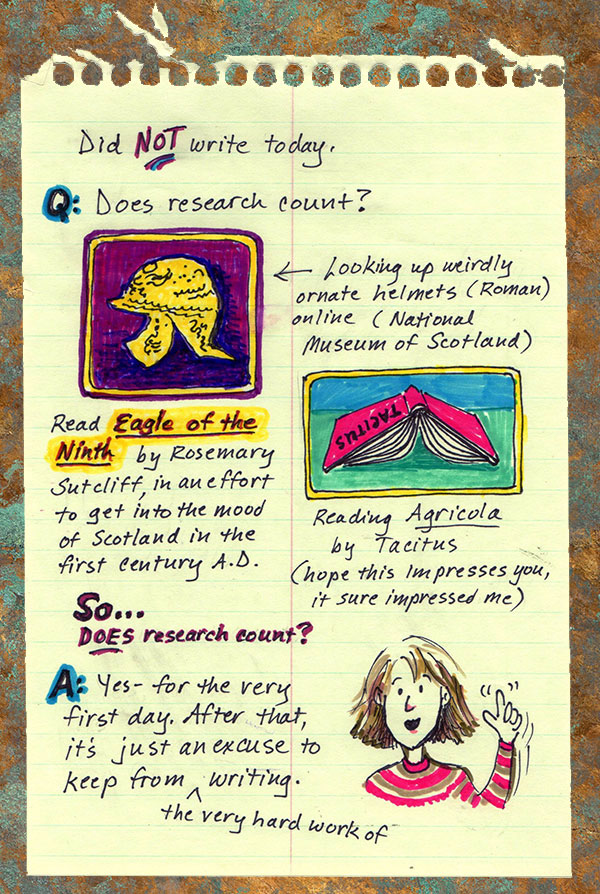 Did NOT write today.
Q: Does research count?
← Looking up weirdly
ornate helmets (Roman)
online (National
Museum of Scotland)
Read Eagle of the
Ninth by Rosemary
Sutcliff, in an effort
to get into the mood
of Scotland in the
first century A.D.
TACITUS
Reading Agricola
by Tacitus
(hope this Impresses you,
it sure impressed me)
So...
DOES research count?
A: Yes- for the very
first day. After that,
it's just an excuse to
keep from ^ writing.
the very hard work of